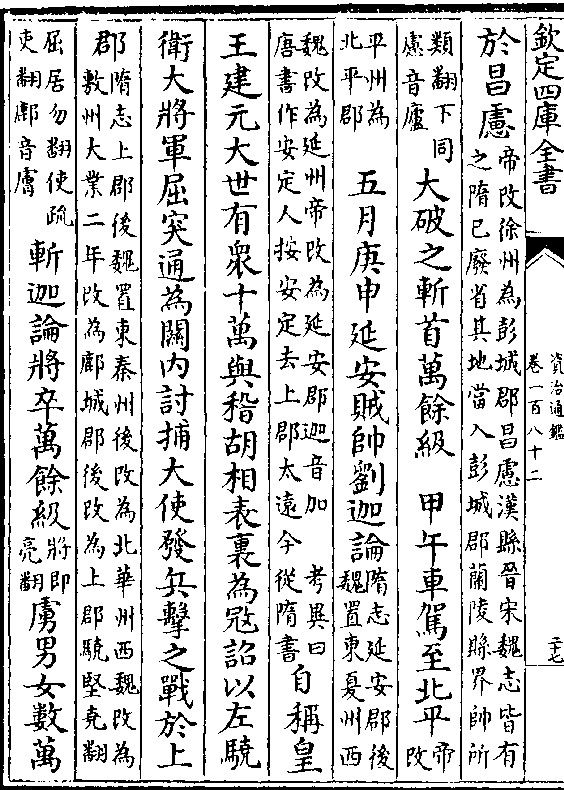 欽定四庫全書
資治通鑑
卷一百八十二
二十七
於昌慮帝改徐州為彭城郡昌慮漢縣晉宋魏志皆有
之隋已廢省其地當入彭城郡蘭陵縣界帥所
類翻下同
慮音廬大破之斬首萬餘級 甲午車駕至北平帝
改
平州為
北平郡 五月庚申延安賊帥劉迦論隋志延安郡後
魏置東夏州西
魏改為延州帝改為延安郡迦音加 考異曰
唐書作安定人按安定去上郡太遠今從隋書自稱皇
王建元大世有衆十萬與稽胡相表裏為冦詔以左驍
衛大將軍屈突通為關内討捕大使發兵擊之戰於上
郡隋志上郡後魏置東秦州後改為北華州西魏改為
敷州大業二年改為鄜城郡後改為上郡驍堅堯翻
屈居勿翻使疏
吏翻鄜音膚斬迦論將卒萬餘級將即
亮翻虜男女數萬